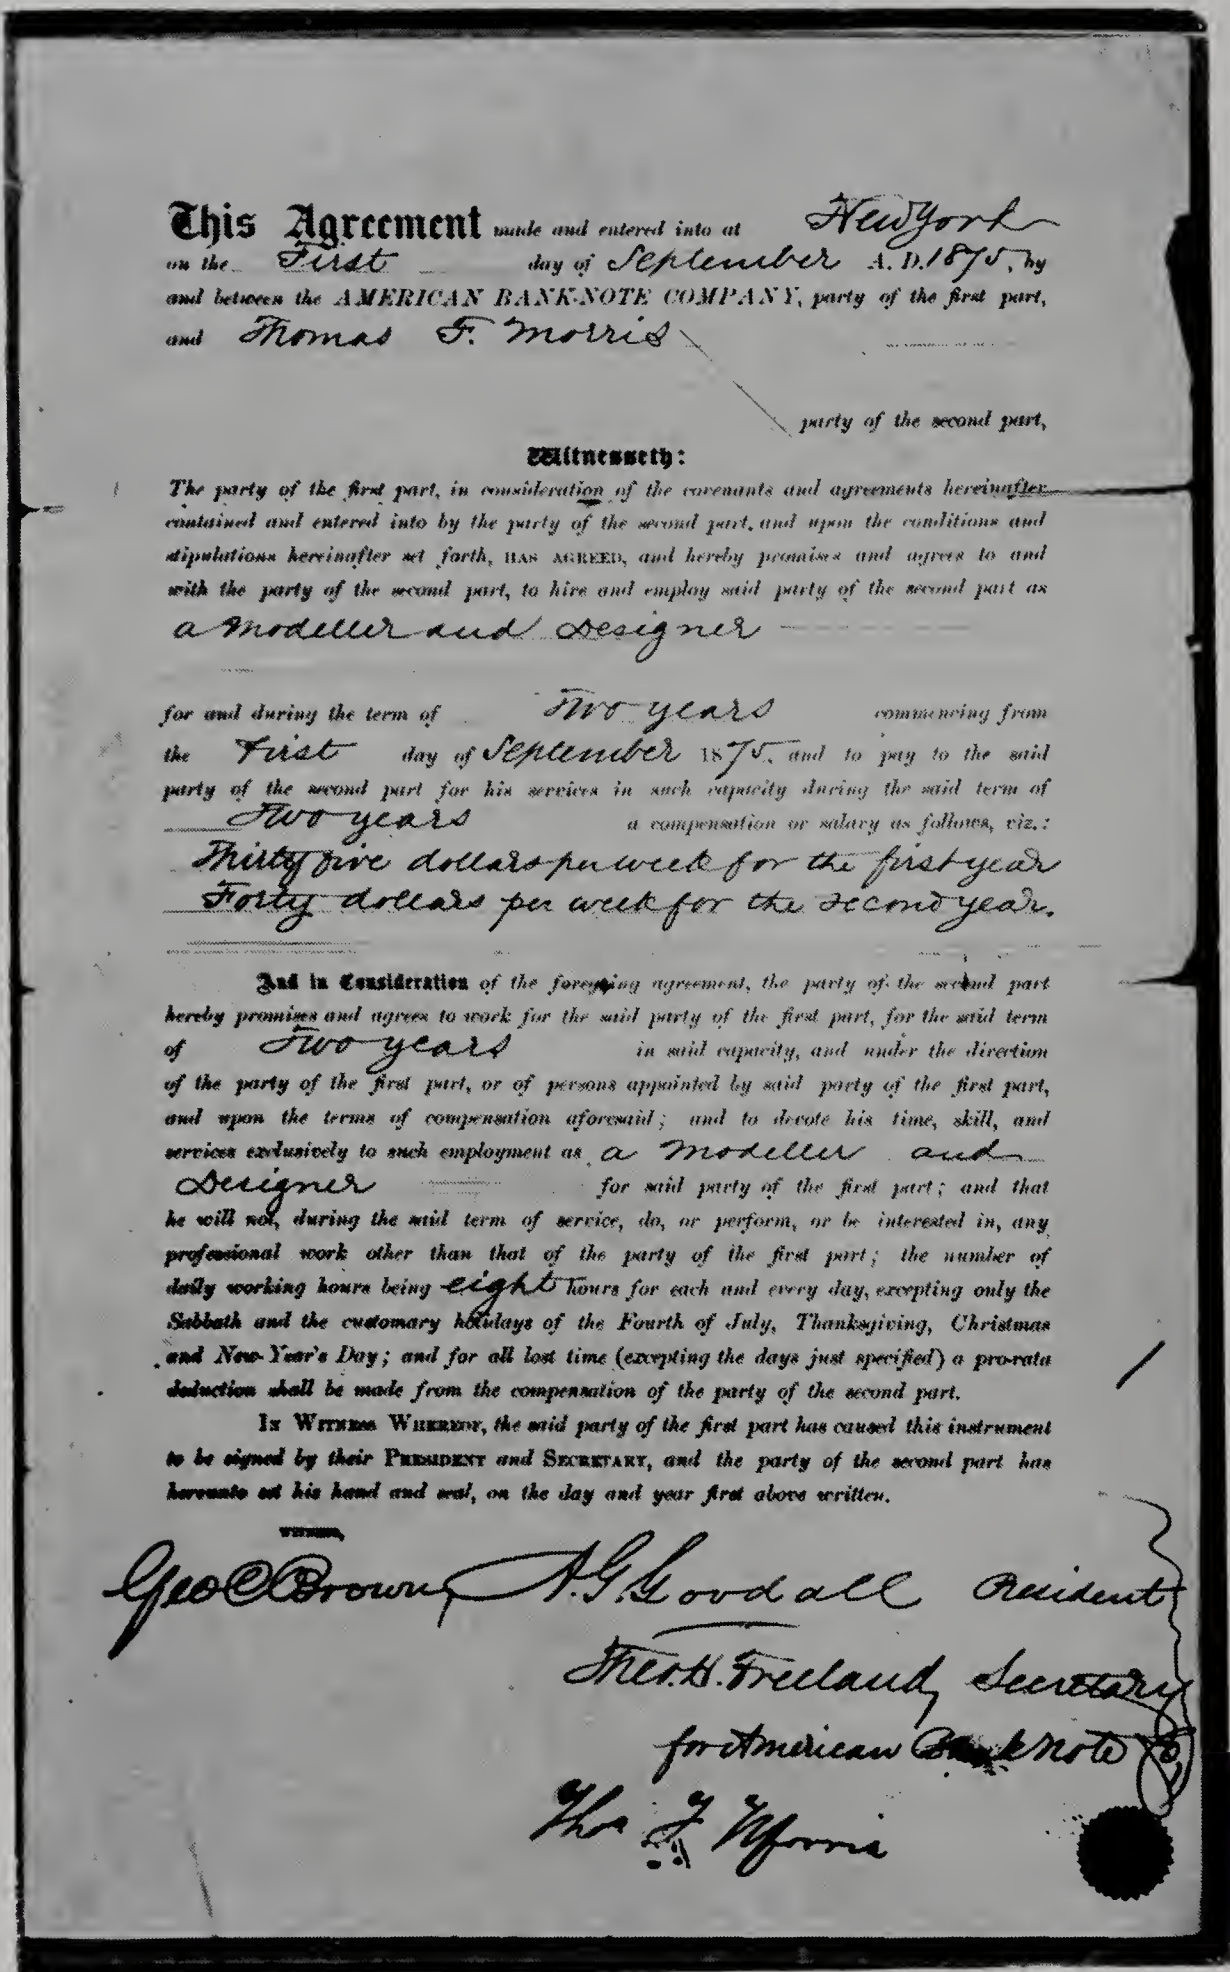 This Agreement made and entered into at New York
on the First day of September A. D. 1875, by
and between the AMERICAN BANK-NOTE COMPANY, party of the first part,
and Thomas F. Morris
party of the second part,
Witnesseth:
The party of the first part, in consideration of the covenants and agreements hereinafter
contained and entered into by the party of the second part, and upon the conditions and
stipulations hereinafter set forth, HAS AGREED, and hereby promises and agrees to and
with the party of the second part, to hire and employ said party of the second part as
a Modeller and Designer
for and during the term of Two years commencing from
the First day of September 1875. and to pay to the said
party of the second part for his services in such capacity during the said term of
Two years a compensation or salary as follows, viz.:
Thirty five dollars per week for the first year
Forty dollars per week for the second year.
And in Consideration of the foregoing agreement, the party of the second part
hereby promises and agrees to work for the said party of the first part, for the said term
of Two years in said capacity, and under the direction
of the party of the first part, or of persons appointed by said party of the first part,
and upon the terms of compensation aforesaid; and to devote his time, skill, and
services exclusively to such employment as a Modeller and
Designer for said party of the first part; and that
he will not, during the said term of service, do, or perform, or be interested in, any
professional work other than that of the party of the first part; the number of
daily working hours being eight hours for each and every day, excepting only the
Sabbath and the customary holidays of the Fourth of July, Thanksgiving, Christmas
and New-Year's Day; and for all lost time (excepting the days just specified) a pro-rata
deduction shall be made from the compensation of the party of the second part.
IN WITNESS WHEREOF, the said party of the first part has caused this instrument
to be signed by their PRESIDENT and SECRETARY, and the party of the second part has
hereunto set his hand and seal, on the day and year first above written.
WITNESS,
Geo C Brown A. G. Goodall President
Theo. H. Freeland, Secretary
for American Bank Note Co,
Tho F Morris